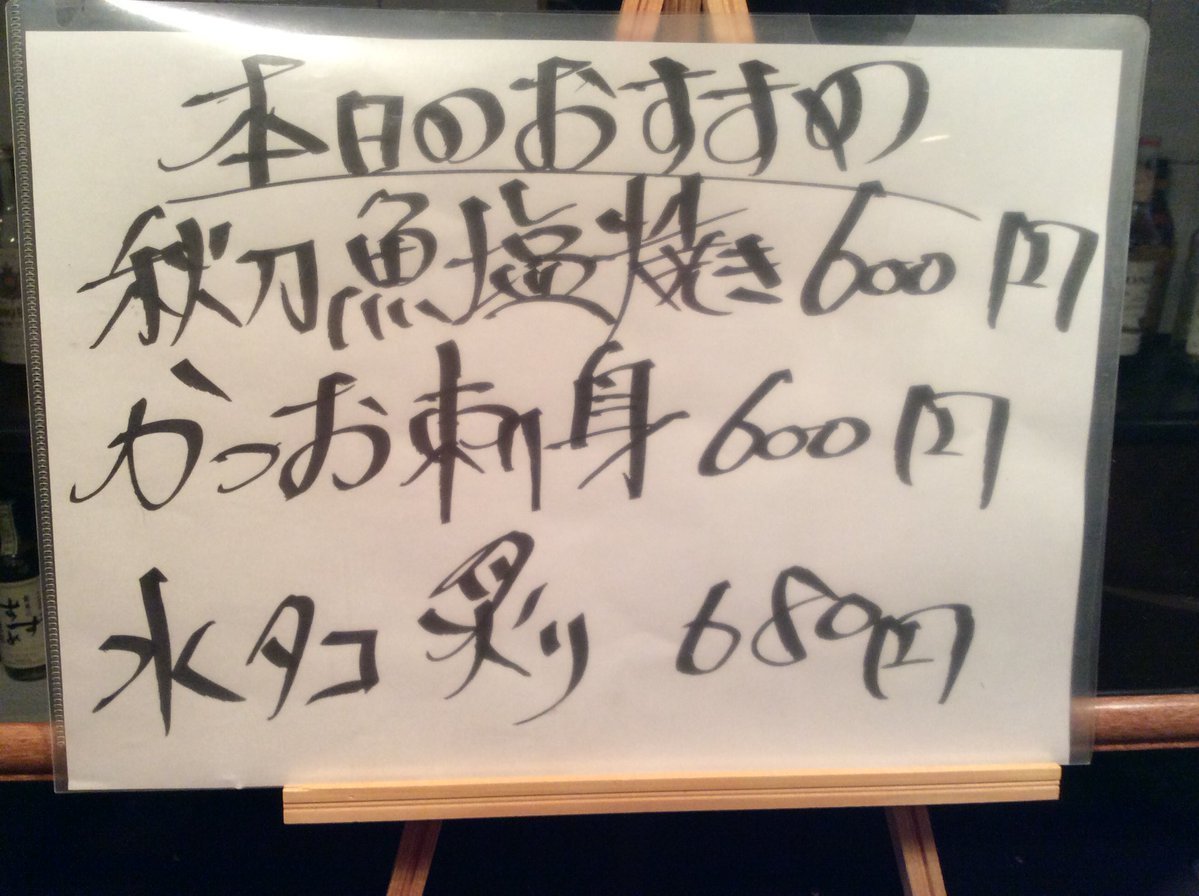 本日のおすすめ
秋刀魚塩焼き 600円
かつお刺身 600円
水タコ 炙り 680円